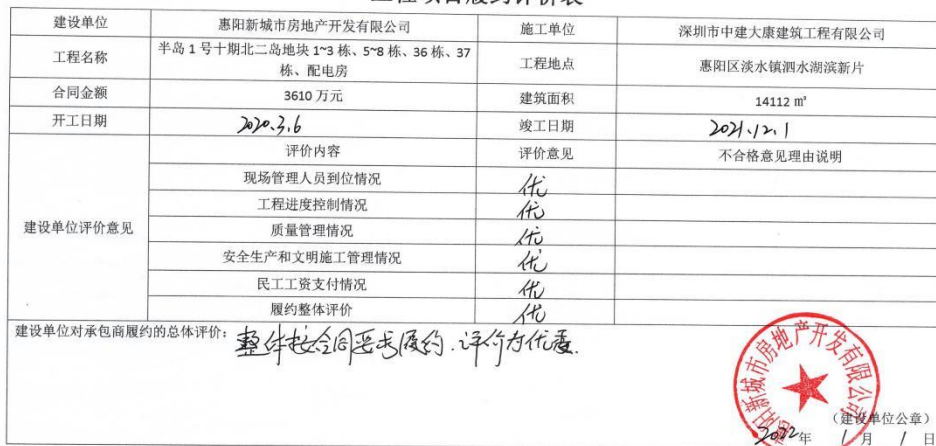 工程项目履约评价表
建设单位 惠阳新城市房地产开发有限公司 施工单位 深圳市中建大康建筑工程有限公司
工程名称 半岛1号十期北二岛地块1~3栋、5~8栋、36栋、37
栋、配电房 工程地点 惠阳区淡水镇泗水湖滨新片
合同金额 3610万元 建筑面积 14112 m³
开工日期 2020.3.6 竣工日期 2021.12.1
建设单位评价意见 评价内容 评价意见 不合格意见理由说明
现场管理人员到位情况 优
工程进度控制情况 优
质量管理情况 优
安全生产和文明施工管理情况 优
民工工资支付情况 优
履约整体评价 优
建设单位对承包商履约的总体评价：整体按合同要求履约.评价为优秀.
惠阳新城市房地产开发有限公司
（建设单位公章）
2022年 1月 1日